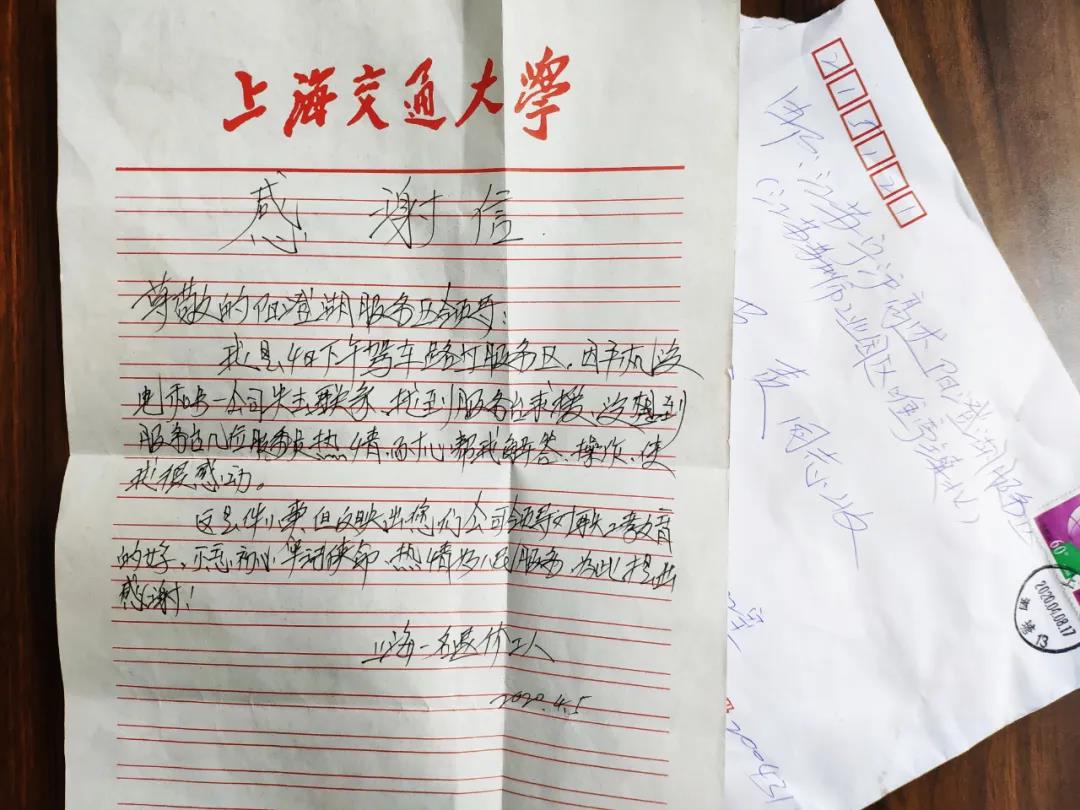 上海交通大学
感谢信
尊敬的阳澄湖服务区领导：
我是4日下午驾车路过服务区，因手机没
电和另一公司失去联系，找到服务台求援，没想到
服务台几位服务员热情、耐心帮我解答、操作，使
我很感动。
这是件小事但反映出您们公司领导对职工教育
的好，不忘初心牢记使命，热情为人民服务，为此提出
感谢！
上海一名退休工人
2020.4.5
215121
邮：江苏宁沪高速阳澄湖服务区
（江苏苏州市工业园区唯亭镇北）
同志收
60分
2020.04.08.17